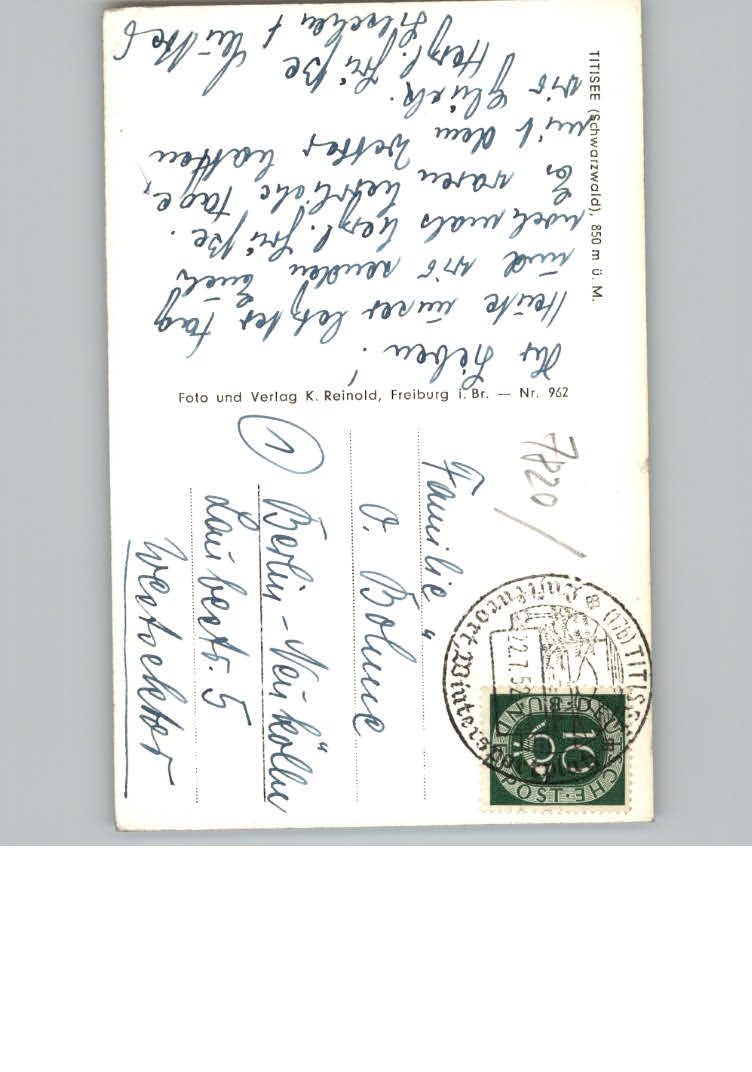 TITISEE (Schwarzwald), 850 m ü. M.
Ihr Lieben!
Heute unser letzter Tag
und wir senden Euch
nochmals herzl. Grüße.
Es waren herrliche Tage,
mit dem Wetter hatten
wir Glück.
Herzl. Grüße
Foto und Verlag K. Reinold, Freiburg i. Br. — Nr. 962
7820/
Familie
O. Bohme
1
Berlin-Neukölln
Laubestr. 5
Westsektor
(17b) TITISEE
Luftkurort, Wintersportplatz
22.7.52
DEUTSCHE BUNDESPOST
10